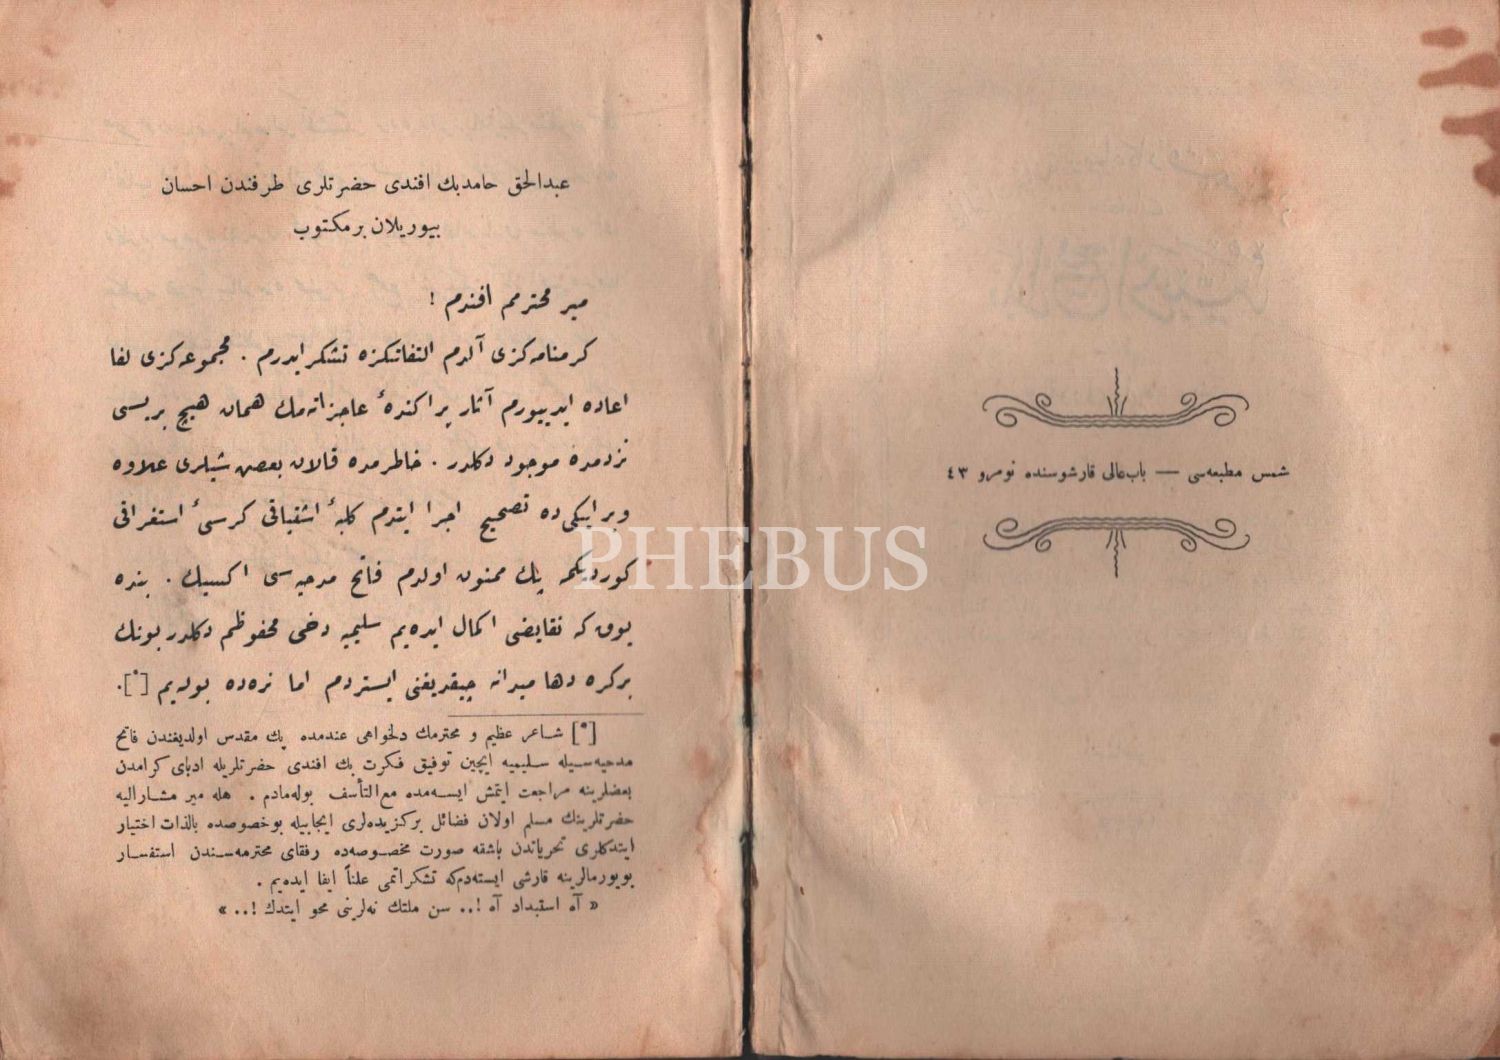 شمس مطبعه‌سی — باب‌عالی قارشوسنده نومرو ٤٣
عبدالحق حامدبك افندی حضرتلری طرفندن احسان
بیوریلان برمكتوب
میر محترمم افندم !
كرمنامه‌كزی آلدم التفاتكزه تشكر ایدرم . مجموعه‌كزی لفا
اعاده ایدییورم آثار پراكندهٔ عاجزانه‌مك همان هیچ بریسی
نزدمده موجود دكلدر . خاطرمده قالان بعض شیلری علاوه
و بر ایكی ده تصحیح اجرا ایتدم كلبهٔ اشتیاقی كرسیٔ استغراقی
كوردیكمه پك ممنون اولدم فاتح مدحیه‌سی اكسیك . بنده
یوق كه نقایصنی اكمال ایده‌یم سلیمیه دخی محفوظم دكلدر بونك
بركره دها میدانه چیقدیغنی ایستردم اما نره‌ده بوله‌یم [*].
[*] شاعر عظیم و محترمك دلخواهی عندمده پك مقدس اولدیغندن فاتح
مدحیه‌سیله سلیمیه ایچین توفیق فكرت بك افندی حضرتلریله ادبای كرامدن
بعضلرینه مراجعت ایتمش ایسه‌مده مع‌التأسف بوله‌مادم . هله میر مشارالیه
حضرتلرینك مسلم اولان فضائل بركزیده‌لری ایجابیله بوخصوصده بالذات اختیار
ایتدكلری تحریاتدن باشقه صورت مخصوصه‌ده رفقای محترمه‌سندن استفسار
بویورمالرینه قارشی ایسته‌دم‌كه تشكراتمی علناً ایفا ایده‌یم .
« آه استبداد آه !.. سن ملتك نه‌لرینی محو ایتدك !.. »
PHEBUS